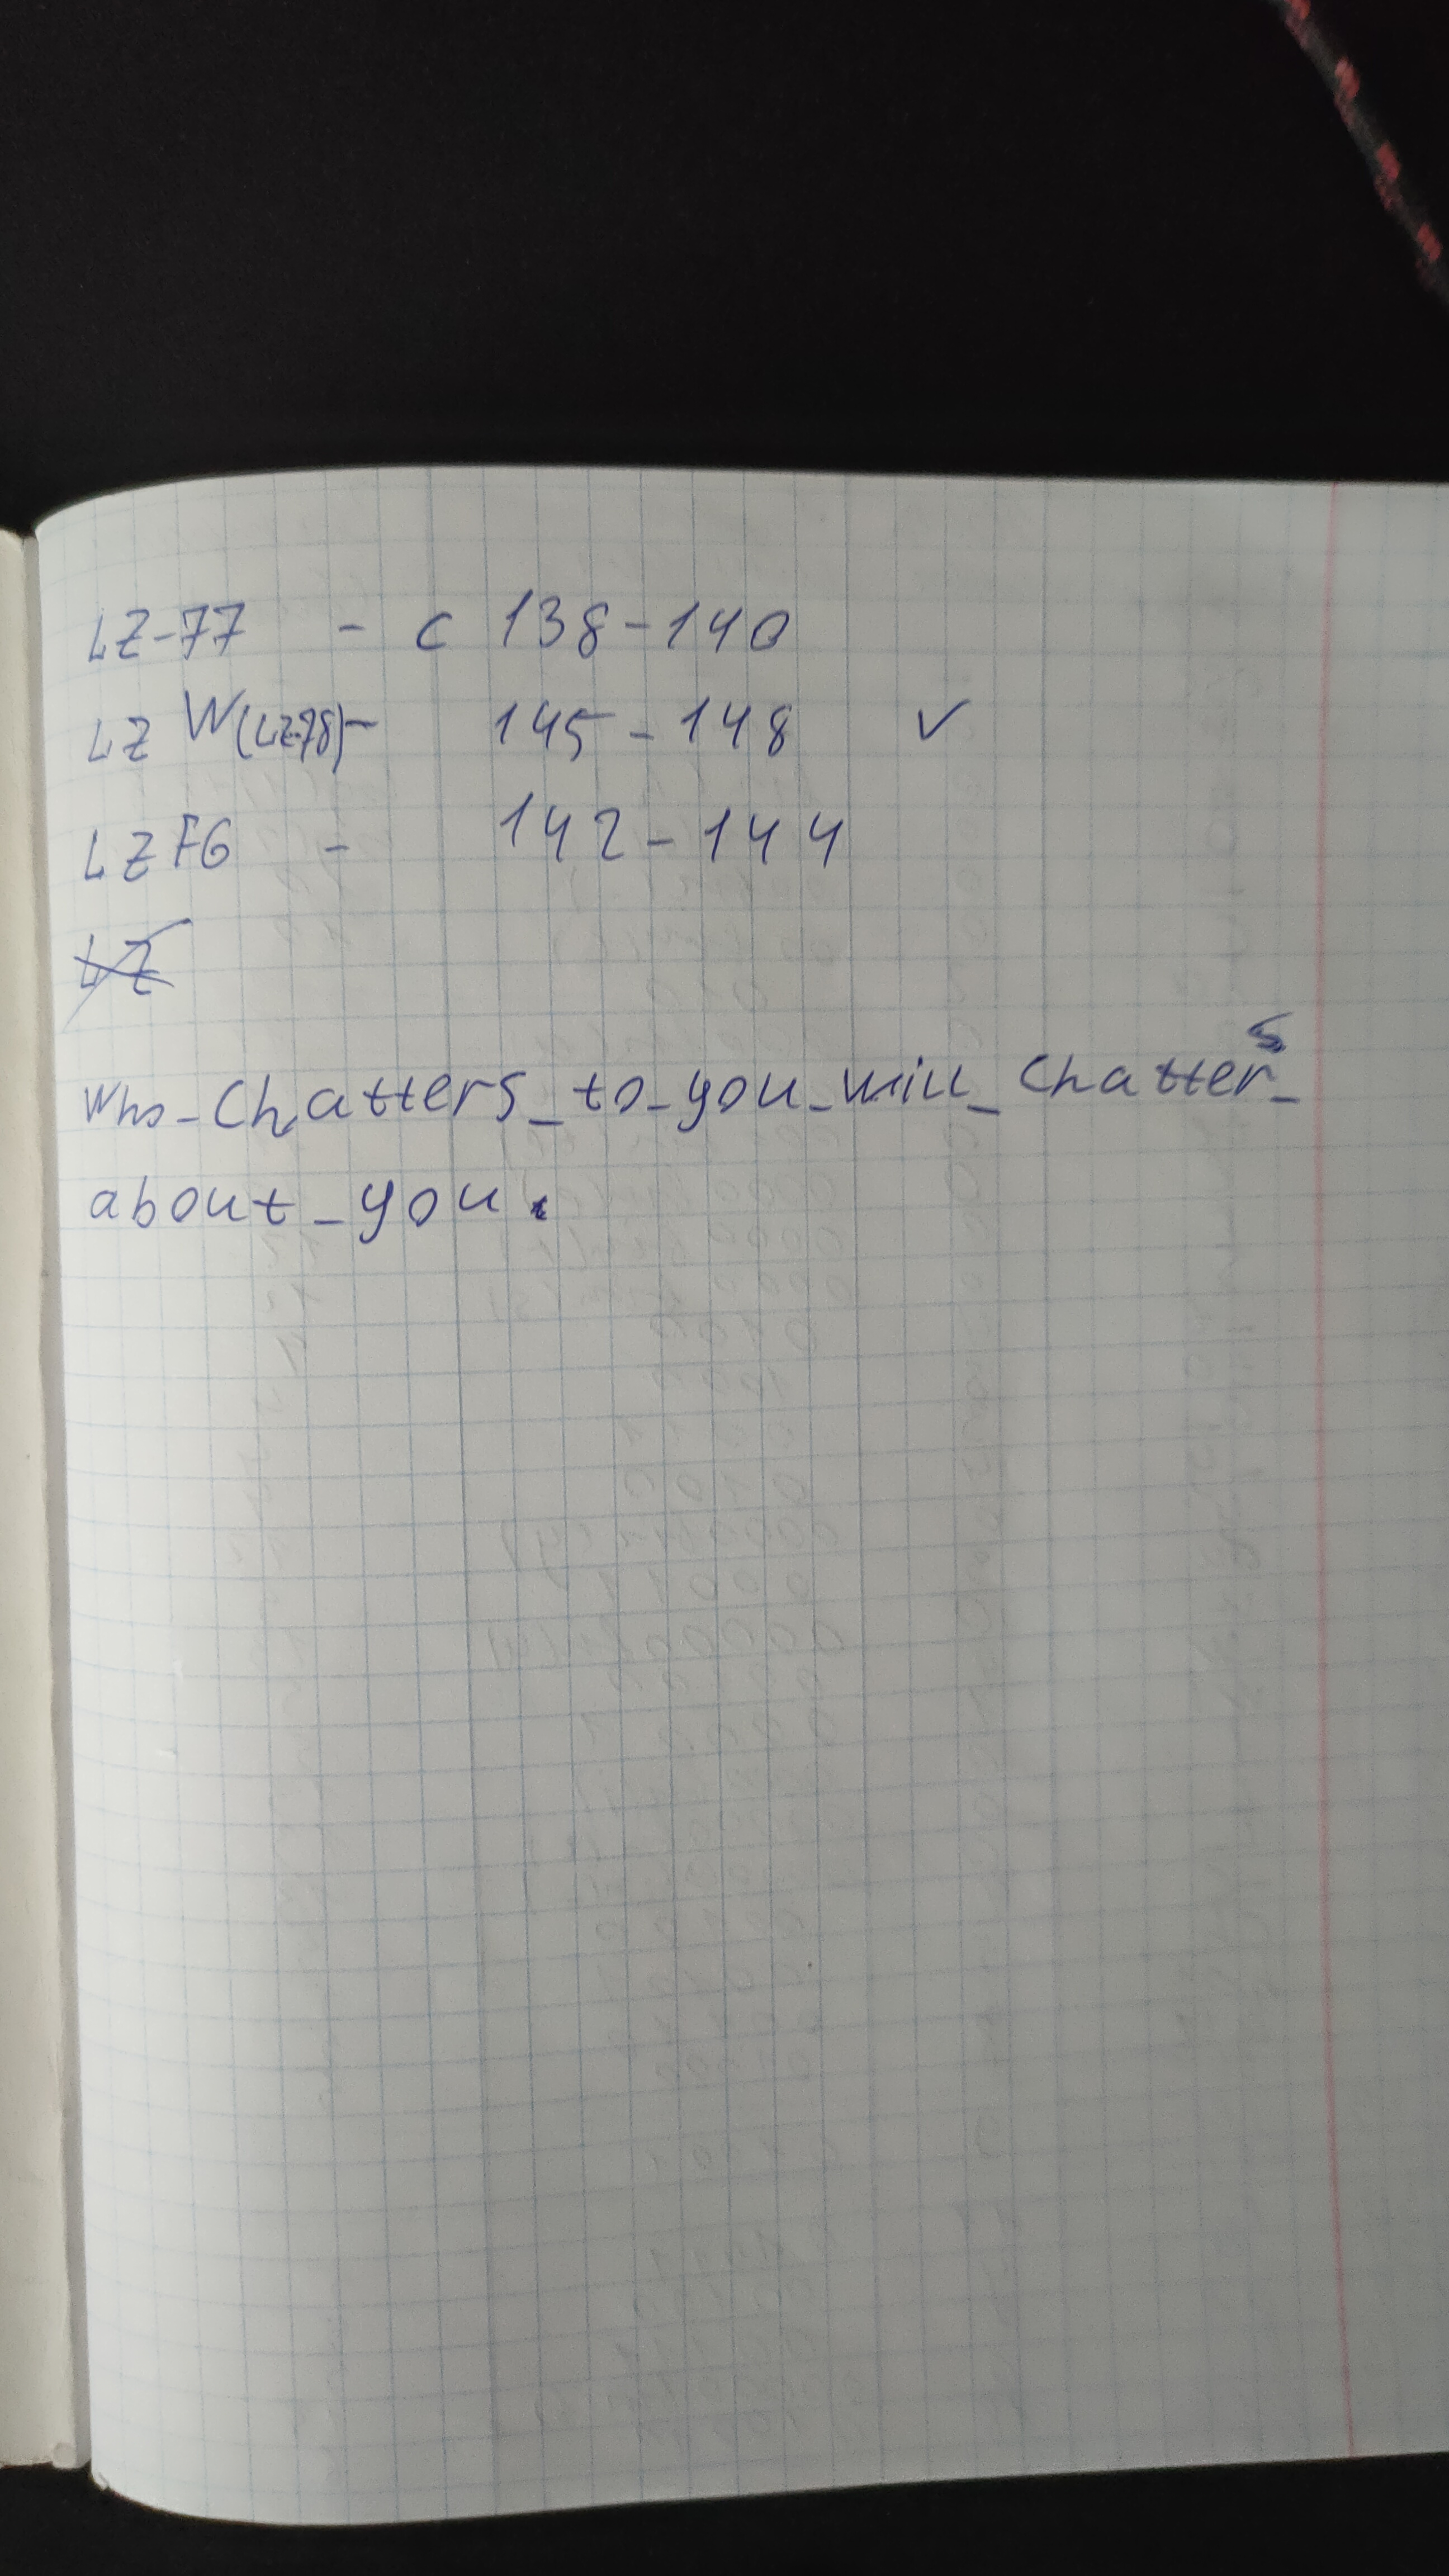 LZ-77 - с 138-140
LZ W(LZ-78)- 145-148 ✓
LZ FG - 142-144
LZ
Who_Chatters_to_you_will_Chatters_
about_you.